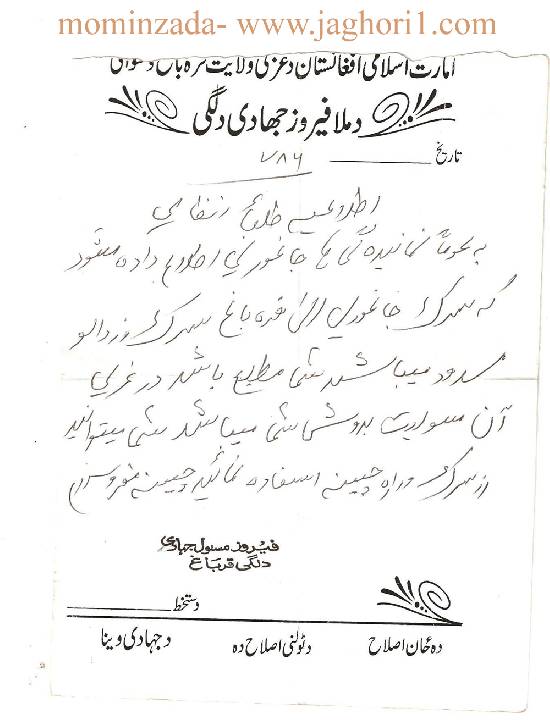 mominzada- www.jaghori1.com
امارت اسلامی افغانستان د غزنی ولایت قره باغ ولسوالی
د ملا فیروز جهادی دلگی
تاریخ
۷۸۶
اطلاعیه طلبا نظامی
به عموم نمایندگی های جاغوری اطلاع داده میشود
که سرک جاغوری الی قره باغ سرک زردالو
مسدود میباشد شما مطلع باشد در غیر
آن مسولیت بدوش شما میباشد شما میتوانید
از سرک وراه چینه استفاده نمائید چینه
فیروز مسول جهادی
دلگی قرباغ
دستخط
ده ځان اصلاح
د ټولنی اصلاح ده
د جهادی وینا